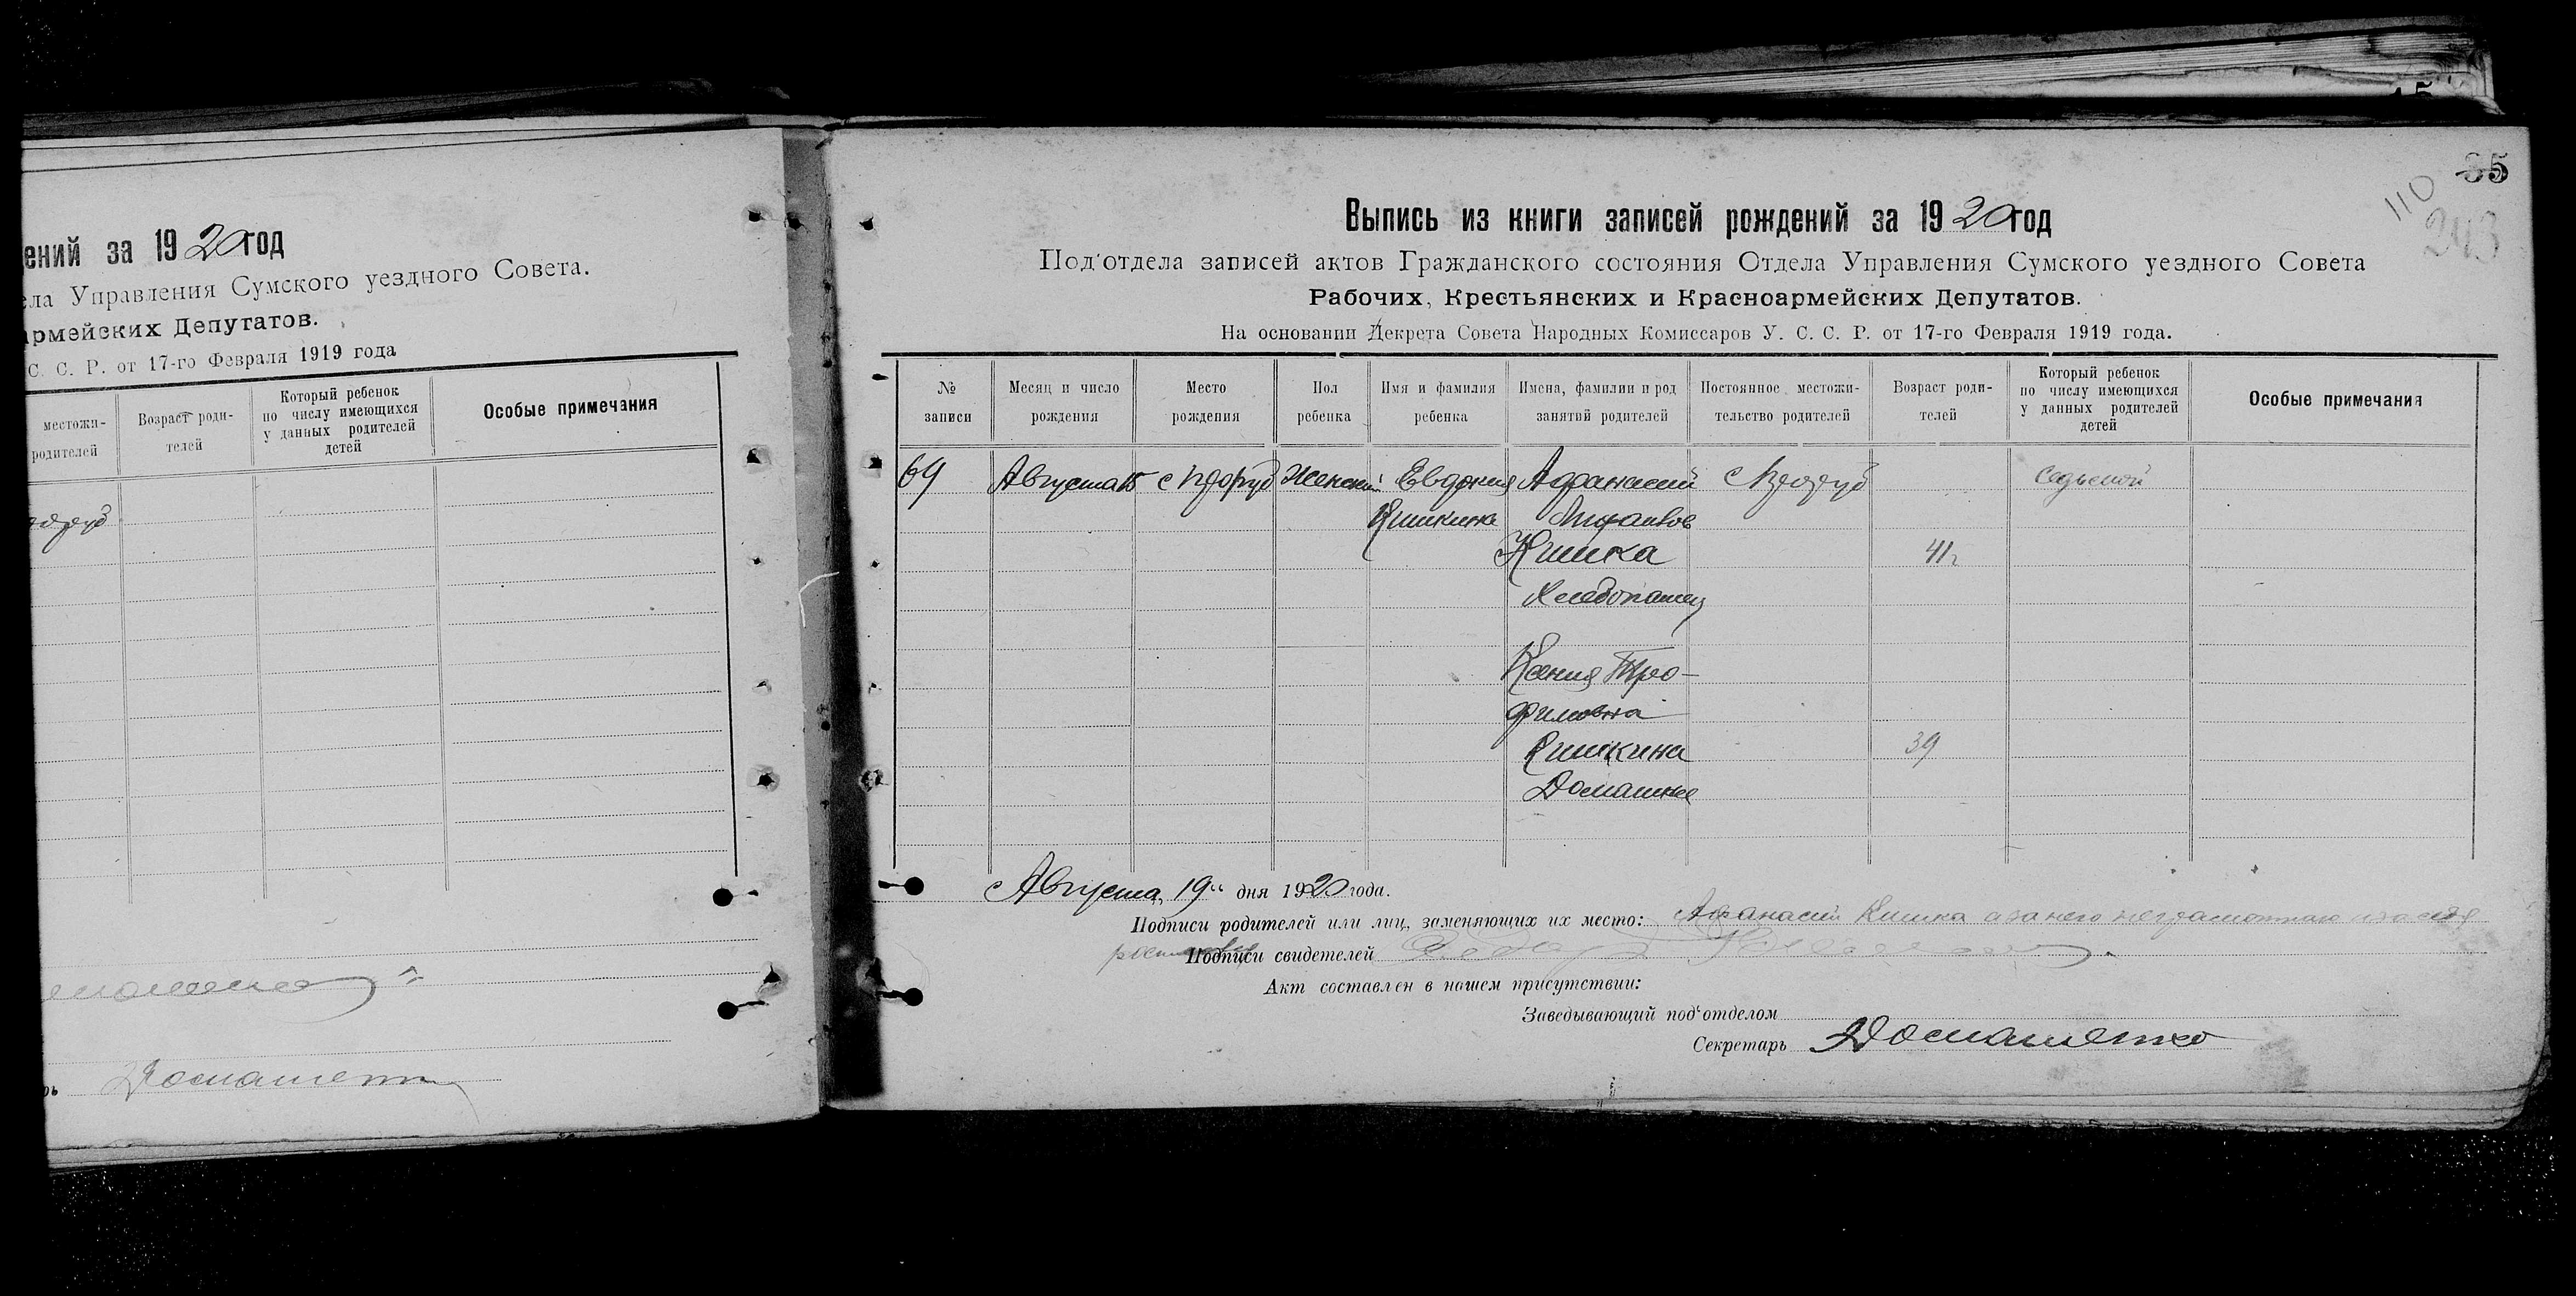 ений за 1920 год
ела Управления Сумского уездного Совета.
армейских Депутатов.
С. С. Р. от 17-го Февраля 1919 года
местожи-
родителей
Возраст роди-
телей
Который ребенок
по числу имеющихся
у данных родителей
детей
Особые примечания
рь Домашенко
35
110
243
Выпись из книги записей рождений за 1920 год
Под'отдела записей актов Гражданского состояния Отдела Управления Сумского уездного Совета
Рабочих, Крестьянских и Красноармейских Депутатов.
На основании Декрета Совета Народных Комиссаров У. С. С. Р. от 17-го Февраля 1919 года.
№
записи
Месяц и число
рождения
Место
рождения
Пол
ребенка
Имя и фамилия
ребенка
Имена, фамилии и род
занятий родителей
Постоянное местожи-
тельство родителей
Возраст роди-
телей
Который ребенок
по числу имеющихся
у данных родителей
детей
Особые примечания
69 Августа 15 с Женский Евдокия Афанасий с седьмой
Кишкина
Кишка 41г
Хлебопашец
Ксения Тро-
фимовна
Кишкина 39
Домашнее
Августа, 19" дня 1920 года.
Подписи родителей или лиц, заменяющих их место: Афанасий Кишка а за него неграмотного
Подписи свидетелей
Акт составлен в нашем присутствии:
Заведывающий под'отделом
Секретарь Домашенко